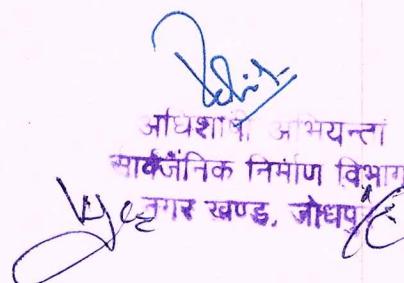 अधिशाषी अभियन्ता
सार्वजनिक निर्माण विभाग
नगर खण्ड, जोधपुर